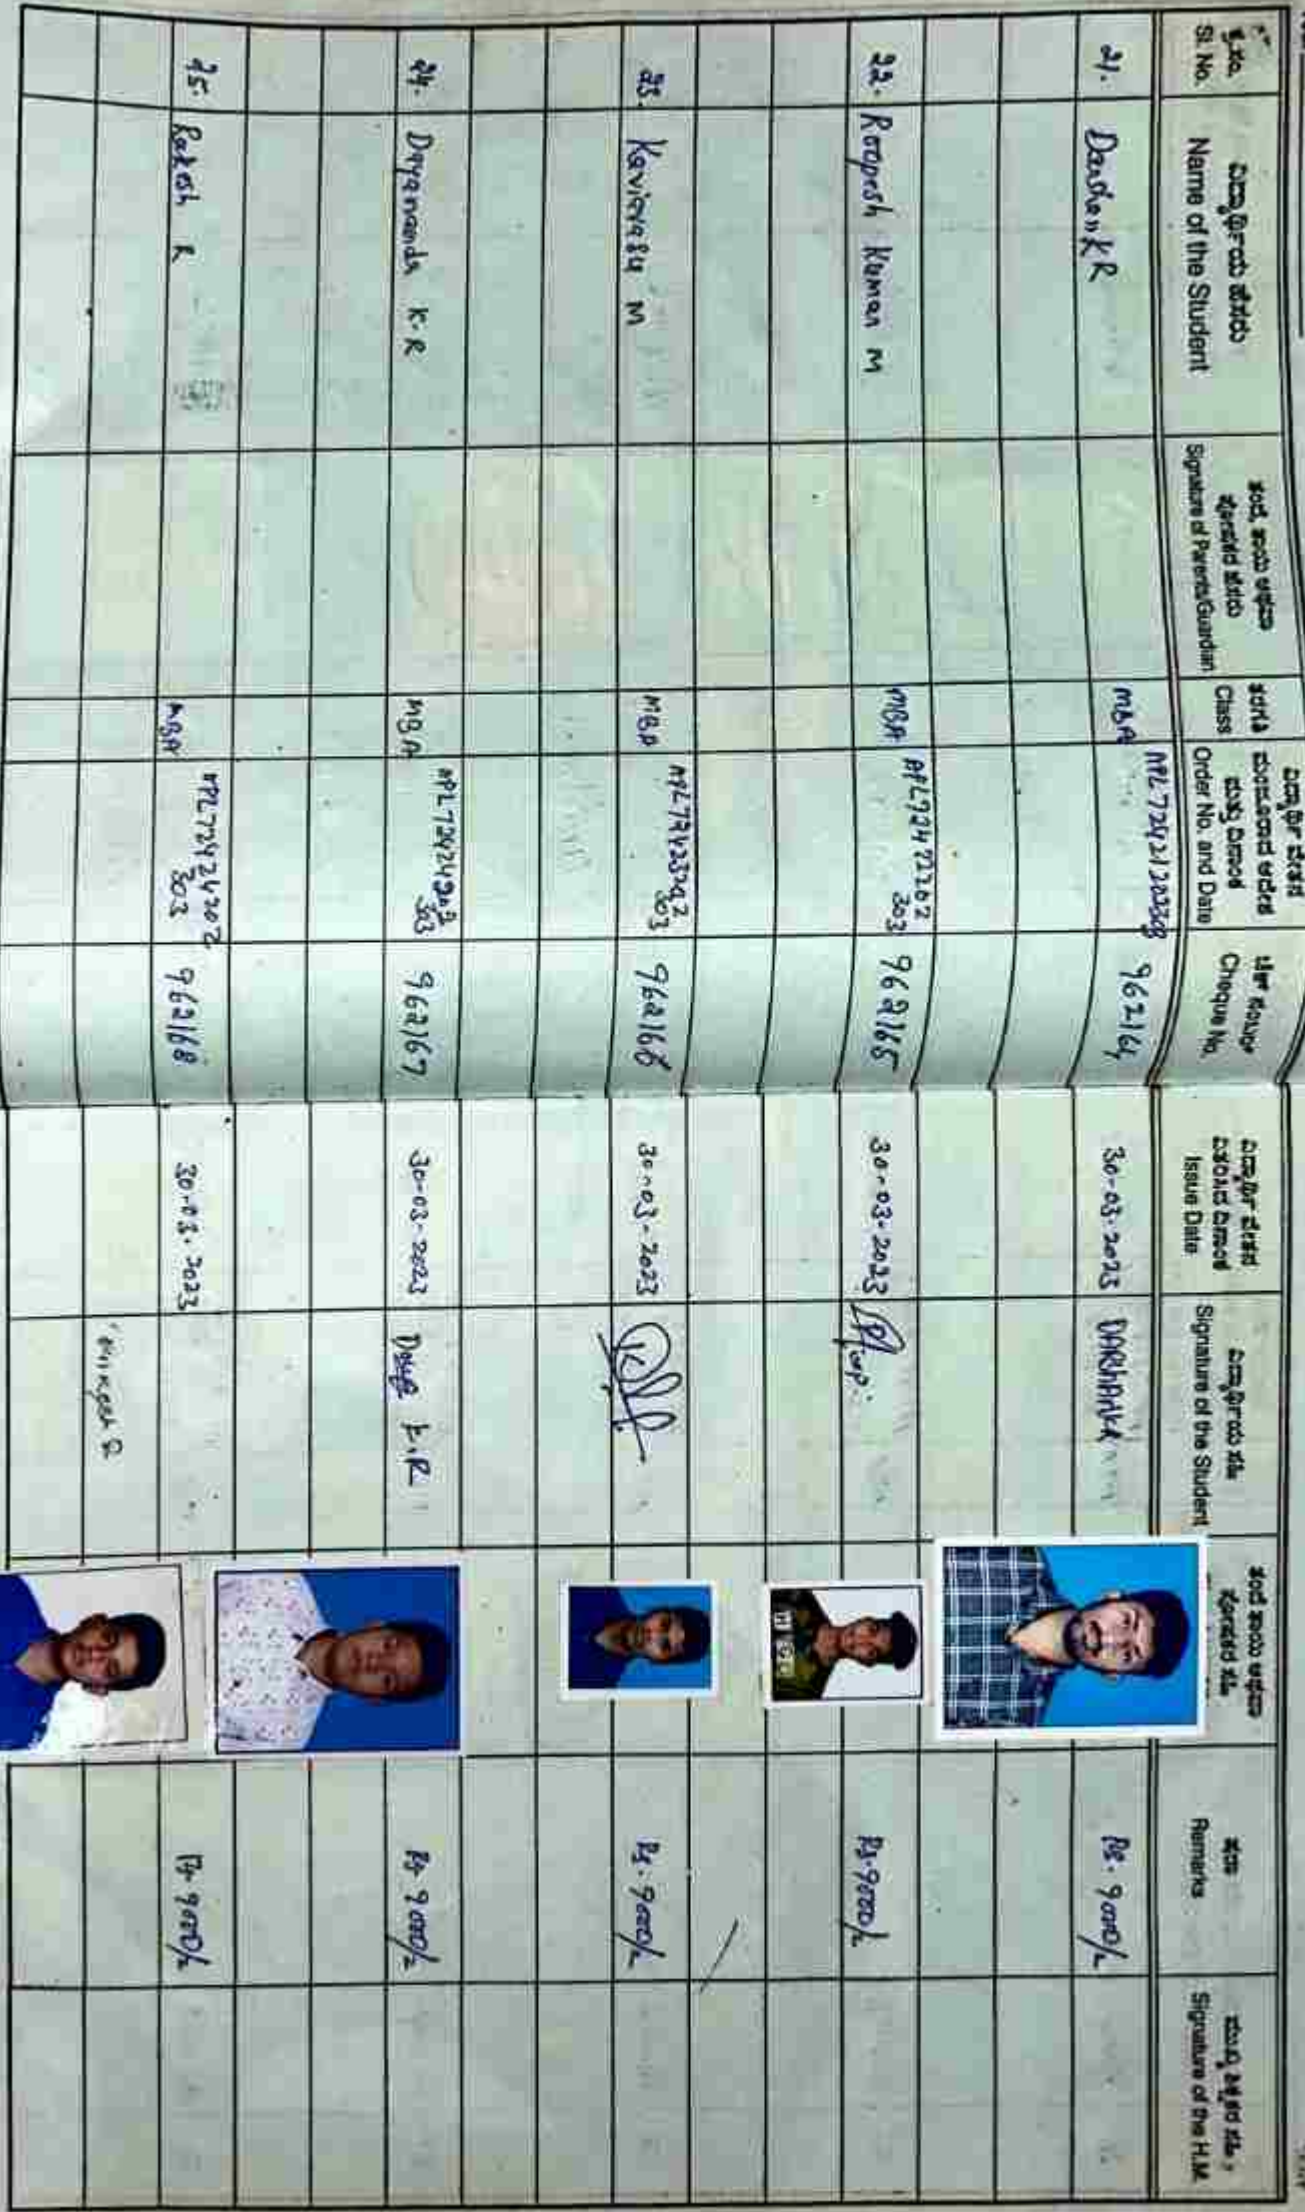 ಕ್ರ.ಸಂ.
Sl. No.
ವಿದ್ಯಾರ್ಥಿಯ ಹೆಸರು
Name of the Student
ತಂದೆ, ತಾಯಿ ಅಥವಾ
ಪೋಷಕರ ಹೆಸರು
Signature of Parents/Guardian
ತರಗತಿ
Class
ವಿದ್ಯಾರ್ಥಿ ವೇತನ
ಮಂಜೂರಾದ ಆದೇಶ
ಮತ್ತು ದಿನಾಂಕ
Order No. and Date
ಚೆಕ್ ನಂಬರ್
Cheque No.
ವಿದ್ಯಾರ್ಥಿ ವೇತನ
ವಿತರಿಸಿದ ದಿನಾಂಕ
Issue Date
ವಿದ್ಯಾರ್ಥಿಯ ಸಹಿ
Signature of the Student
ತಂದೆ ತಾಯಿ ಅಥವಾ
ಪೋಷಕರ ಸಹಿ
ಷರಾ
Remarks
ಮುಖ್ಯ ಶಿಕ್ಷಕರ ಸಹಿ
Signature of the H.M.
21. Darshan K R MBA 962164 30-03-2023 Rs. 9000/-
22. Roopesh Kumar M MBA APL72422202 303 962165 30-03-2023 Rs. 9000/-
23. Kaviarasu M MBA APL72423202 303 962166 30-03-2023 Rs. 9000/-
24. Dayananda K.R MBA APL72424202 303 962167 30-03-2023 K.R Rs 9000/-
25. Rakesh R MBA APL72424202 303 962168 30-03-2023 Rs 9000/-